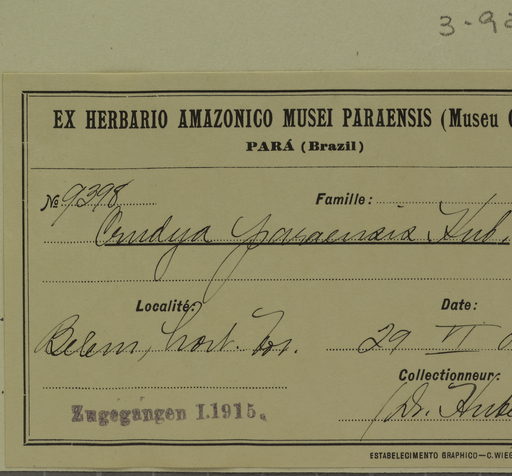 3-92
EX HERBARIO AMAZONICO MUSEI PARAENSIS (Museu
PARÁ (Brazil)
№ 9398 Famille:
paraensis Hub.
Localité: Date:
Belem, hort. 29 VI
Collectionneur:
Dr. Hube
Zugegangen I.1915.
ESTABELECIMENTO GRAPHICO—C.WIEG